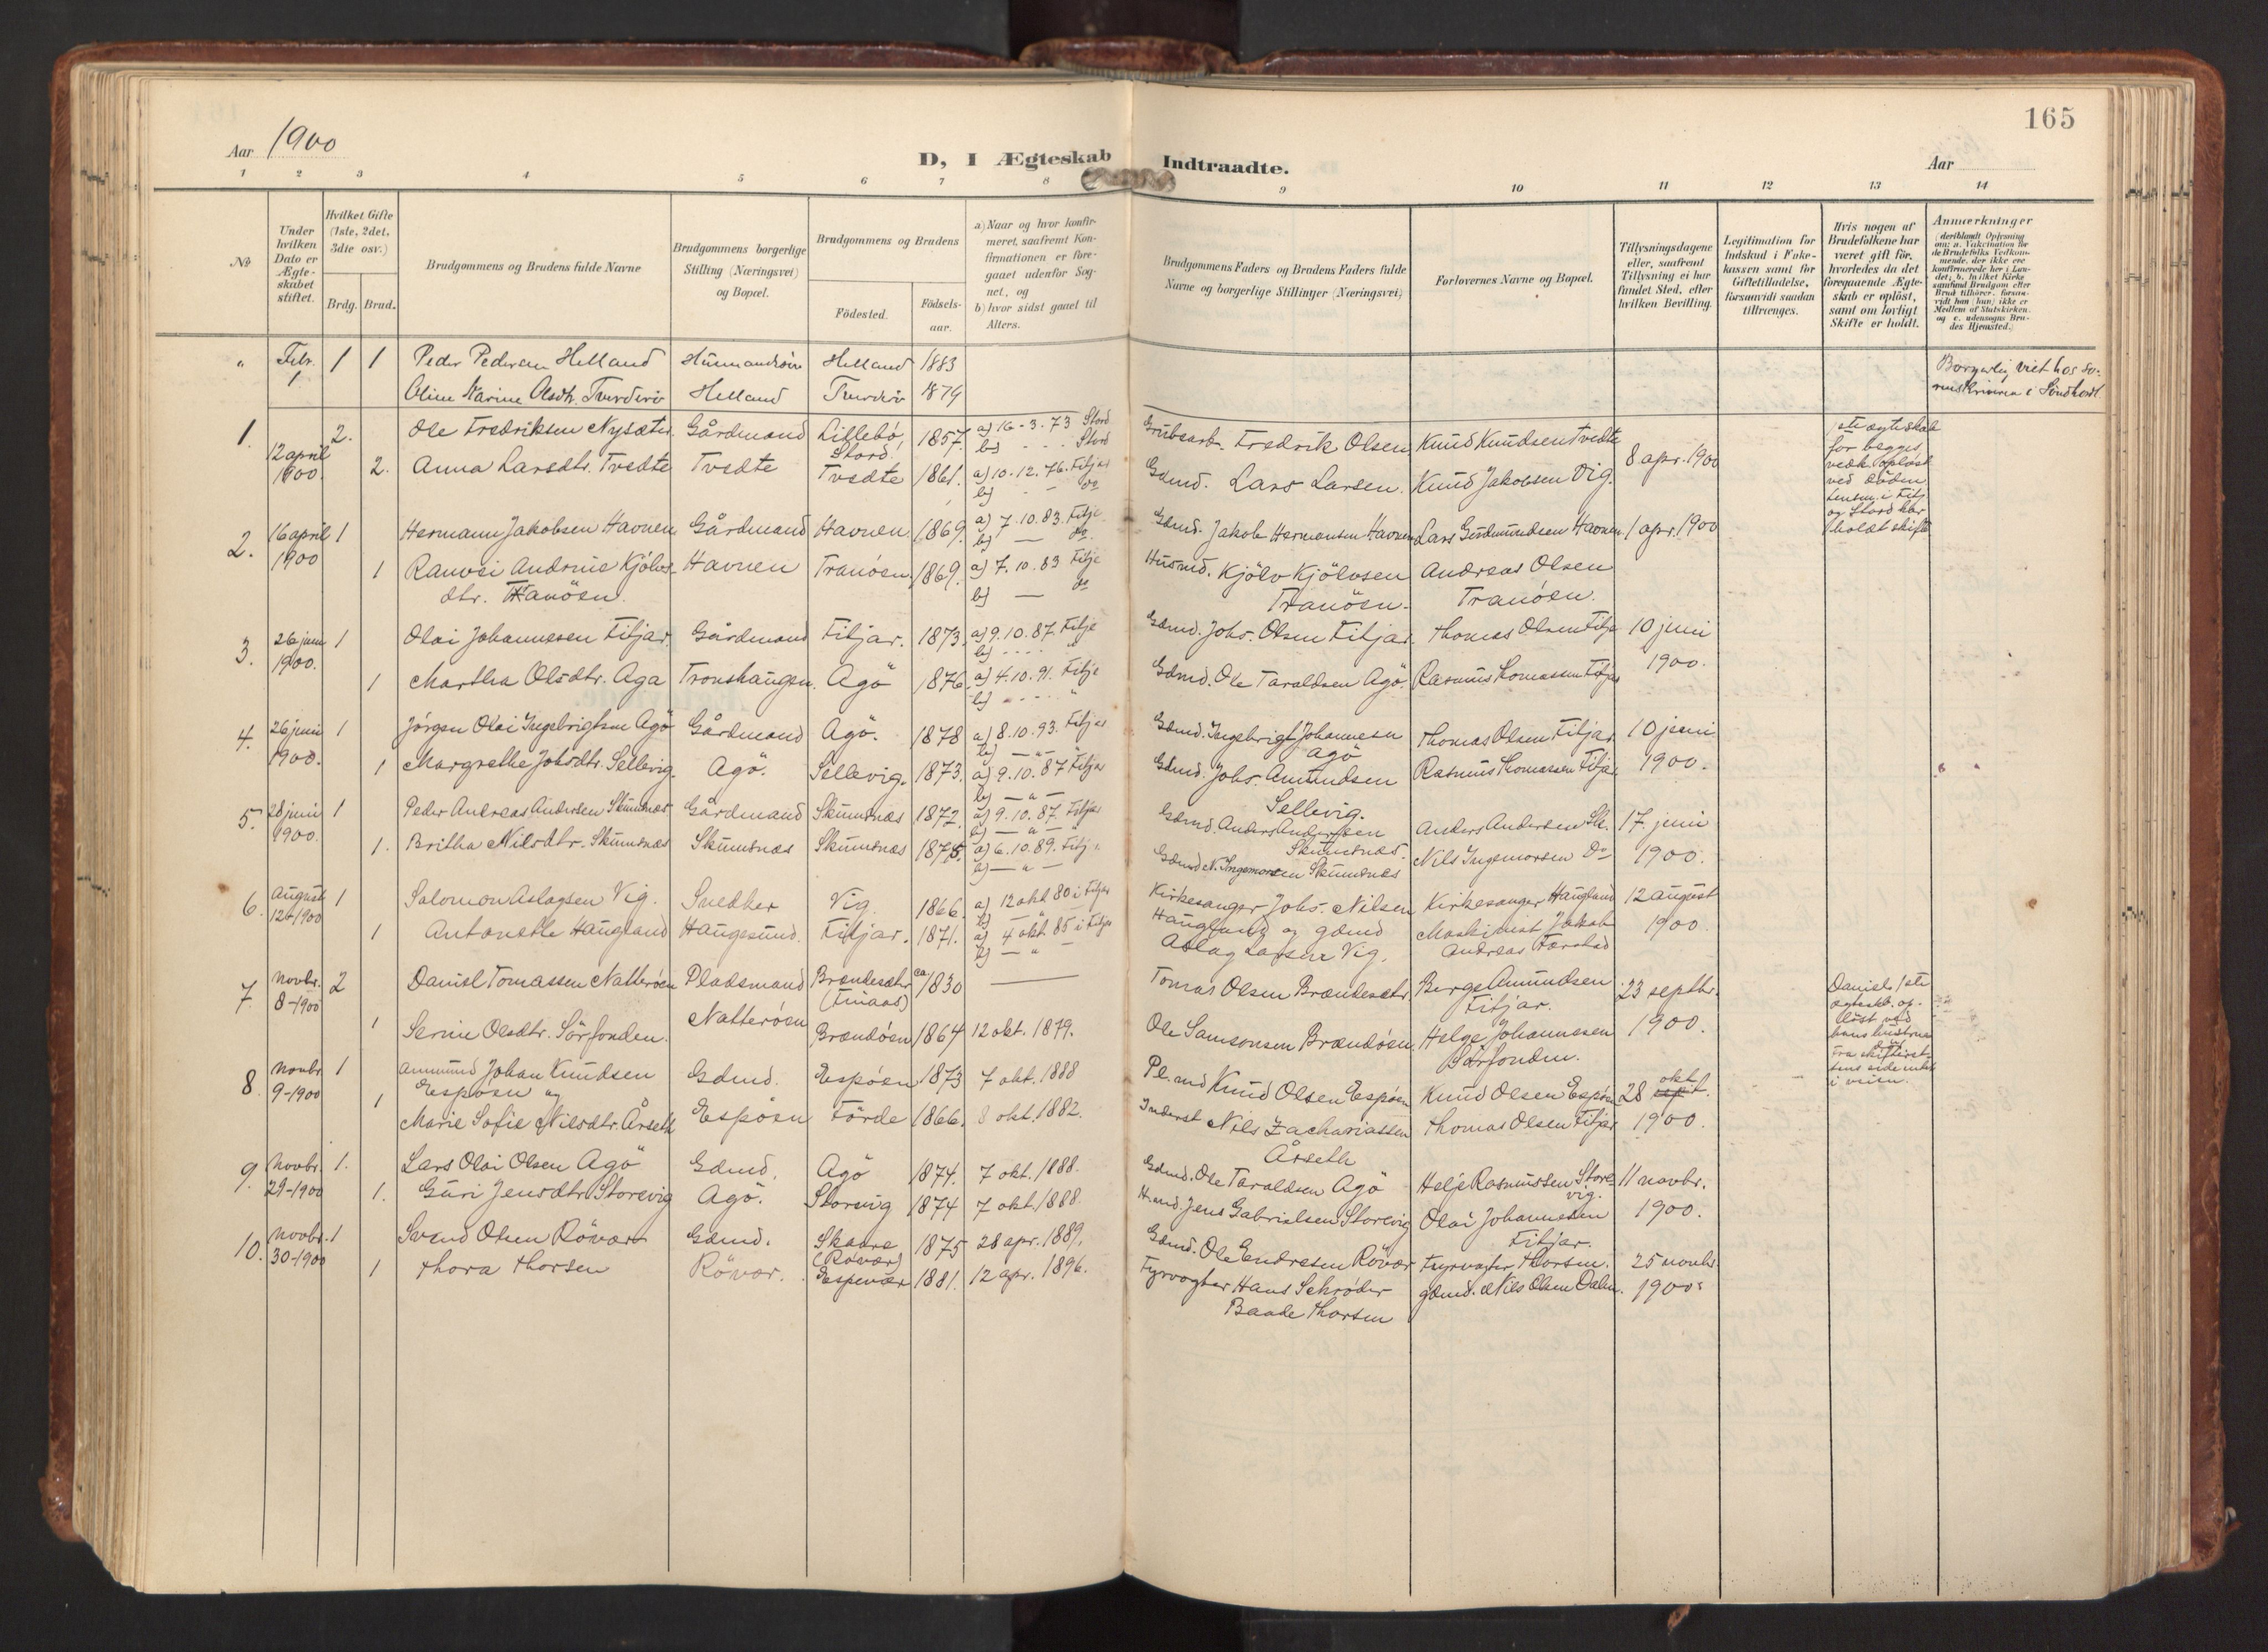 165
Aar 1900
D, I Ægteskab Indtraadte.
Aar
1 2 3 4 5 6 7 8 9 10 11 12 13 14
No
Under hvilken Dato er Ægteskabet stiftet.
Hvilket Gifte (1ste, 2det, 3die osv.)
Brdg. Brud.
Brudgommens og Brudens fulde Navne
Brudgommens borgerlige Stilling (Næringsvei) og Bopæl.
Brudgommens og Brudens
Födested.
Födselsaar.
a) Naar og hvor konfirmeret, saafremt Konfirmationen er foregaaet udenfor Sognet, og
b) hvor sidst gaaet til Alters.
Brudgommens Faders og Brudens Faders fulde Navne og borgerlige Stillinger (Næringsvei)
Forlovernes Navne og Bopæl.
Tillysningsdagene eller, saafremt Tillysning ei har fundet Sted, efter hvilken Bevilling.
Legitimation for Indskud i Enkekassen samt for Giftetilladelse, forsaavidt saadan tiltrænges.
Hvis nogen af Brudefolkene har været gift för, hvorledes da det foregaaende Ægteskab er oplöst, samt om lovligt Skifte er holdt.
Anmærkninger
(deriblandt Oplysning om: a. Vakcination for de Brudefolks Vedkommende, der ikke ere konfirmerede her i Landet; b. hvilket Kirkesamfund Brudgom eller Brud tilhörer, forsaavidt han (hun) ikke er Medlem af Statskirken, og c. udensogns Brudes Hjemsted.)
" Febr. 1. 1 1 Peder Pedersen Helland Husmandssön Helland 1883
Oline Karine Olsdtr. Tverderö Helland Tverderö 1879
Borgerlig viet hos Sorenskriveren i Söndhordl.
1. 12 april 1900. 2. Ole Fredriksen Nysæter. Gårdmand Lillebö, Stord. 1857. a) 16-3-73 Stord b) - - - Stord Grubearb. Fredrik Olsen Knud Knudsen Tvedte 8 apr. 1900
2. Anna Larsdtr. Tvedte Tvedte Tvedte 1861. a) 10.12.76. Fitjar b) - - do Gdmd. Lars Larsen. Knud Jakobsen Vig.
1ste ægteskab
for begges
vedk. oplöst
ved döden
Lensm. i Fitj.
og Stord har
holdt skifte
2. 16 april 1900 1 Hermann Jakobsen Havnen Gårdmand Havnen. 1869. a) 7.10.83. Fitje b) — do. Gdmd. Jakob Hermansen Havnen Lars Gudmundsen Havnen 1 apr. 1900
1 Ranvei Andrine Kjölvs- Havnen Tranöen. 1869. a) 7.10.83 Fitje b) — do Husmd. Kjölv Kjölvsen Andreas Olsen
dtr. Tranöen. Tranöen. Tranöen.
3. 26 juni 1900. 1 Olai Johannesen Fitjar. Gårdmand Fitjar. 1873. a) 9.10.87. Fitje b) - - - - " Gdmd. Johs. Olsen Fitjar. Thomas Olsen Fitje 10 juni
1 Martha Olsdtr. Aga Tronshaugen. Agö 1876. a) 4.10.91. Fitje b) - - - " Gdmd. Ole Taraldsen Agö. Rasmus Tomassen Fitjar 1900.
4. 26 juni 1900. 1 Jörgen Olai Ingebrigtsen Agö Gårdmand Agö. 1878 a) 8.10.93. Fitjar b) — " — Gdmd. Ingebrigt Johannesen Agö Thomas Olsen Fitjar 10 juni
1 Margrethe Johsdtr. Sellevig. Agö. Sellevig. 1873. a) 9.10.87 Fitjar b) — " — Gdmd. Johs. Amundsen Sellevig. Rasmus Tomassen Fitjar 1900.
5. 28 juni 1900. 1 Peder Andreas Andersen Skumsnæs Gårdmand Skumsnæs 1872. a) 9.10.87. Fitjar b) — " — Gdmd. Anders Andersen Skumsnæs. Anders Andersen Sk. 17. juni
1. Britha Nilsdtr. Skumsnæs Skumsnæs Skumsnæs 1875. a) 6.10.89. Fitj. b) — " — Gdmd N. Ingemorsen Skumsnæs Nils Ingemorsen Do 1900.
6. August 12-1900 1 Salomon Aslagsen Vig. Snedker Vig. 1866. a) 12 okt 80 i Fitjar b) — " — Kirkesanger Johs. Nilsen Kirkesanger Haugland 12 august
1 Antonette Haugland Haugesund. Fitjar. 1871. a) 4 okt 85 i Fitjar b) — " — Haugland og gdmd Maskinist Jakob 1900.
Aslag Larsen Vig. Andreas Førstad
7. Novbr. 8-1900 2 Daniel Tomassen Natteröen Pladsmand Brændesæter (Finaas) ca 1830 — Tomas Olsen Brændesæter Berge Amundsen Fitjar. 23 septbr.
1 Serine Olsdtr. Sörfonden. Natteröen Brandöen 1864 12 okt. 1879. Ole Samsonsen Brandöen. Helge Johannesen Sörfonden. 1900.
Daniels 1ste
ægtesk. op-
löst ved
hans hustrus
död
Fra skifteret-
tens side intet
i veien.
8. Novbr 9-1900 1 Ammund Johan Knudsen Gdmd. Espöen 1873 7 okt. 1888 Pl.md Knud Olsen Espöen Knud Olsen Espöen 28 sept. okt.
Espöen og
1 Marie Sofie Nilsdtr. Årseth Espöen Förde 1866. 8 okt. 1882. Inderst Nils Zachariassen Årseth Thomas Olsen Fitjar 1900.
9. Novbr. 29-1900 1. Lars Olai Olsen Agö Gdmd. Agö 1874. 7 okt. 1888. Gdmd. Ole Taraldsen Agö Helje Rasmussen Storevig. 11 novbr.
1. Guri Jensdtr. Storevig Agö. Storevig 1874 7 okt. 1888. H.md. Jens Gabrielsen Storevig Olai Johannesen Fitjar. 1900.
10. Novbr. 30-1900 1 Svend Olsen Rövær Gdmd. Skaare (Rövær) 1875 28 apr. 1889. Gdmd. Ole Endresen Rövær Fyrvogter Thorsen. 25 novbr.
1 Thora Thorsen Rövær. Espevær 1881. 12 apr. 1896. Fyrvogter Hans Schrøder gdmd. Nils Olsen Dalen. 1900.
Baade Thorsen